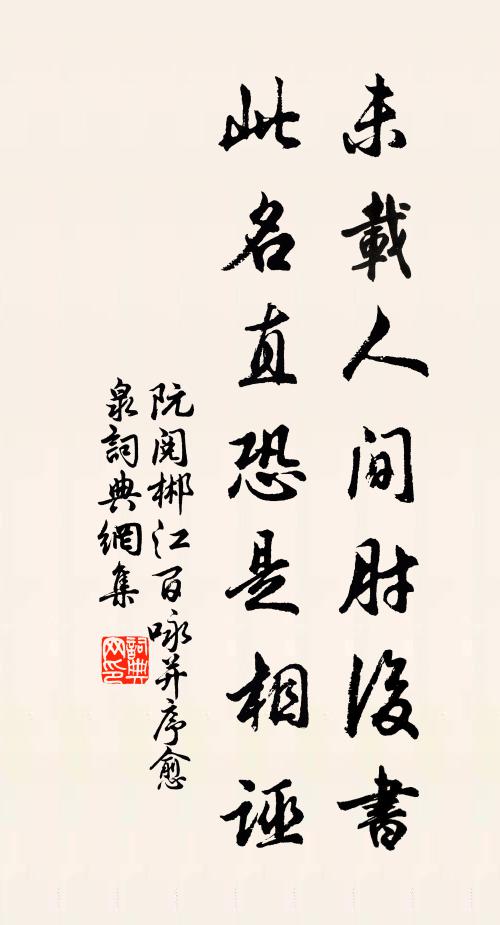 未載人間肘後書
此名直恐是相誣
阮閱郴江百咏并序愈
泉詞典網集
詞典網印